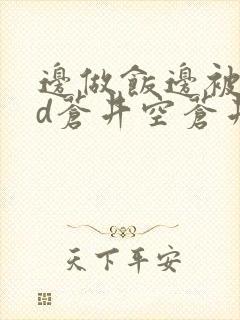 邊做飯邊被
d蒼井空蒼井
天下平安